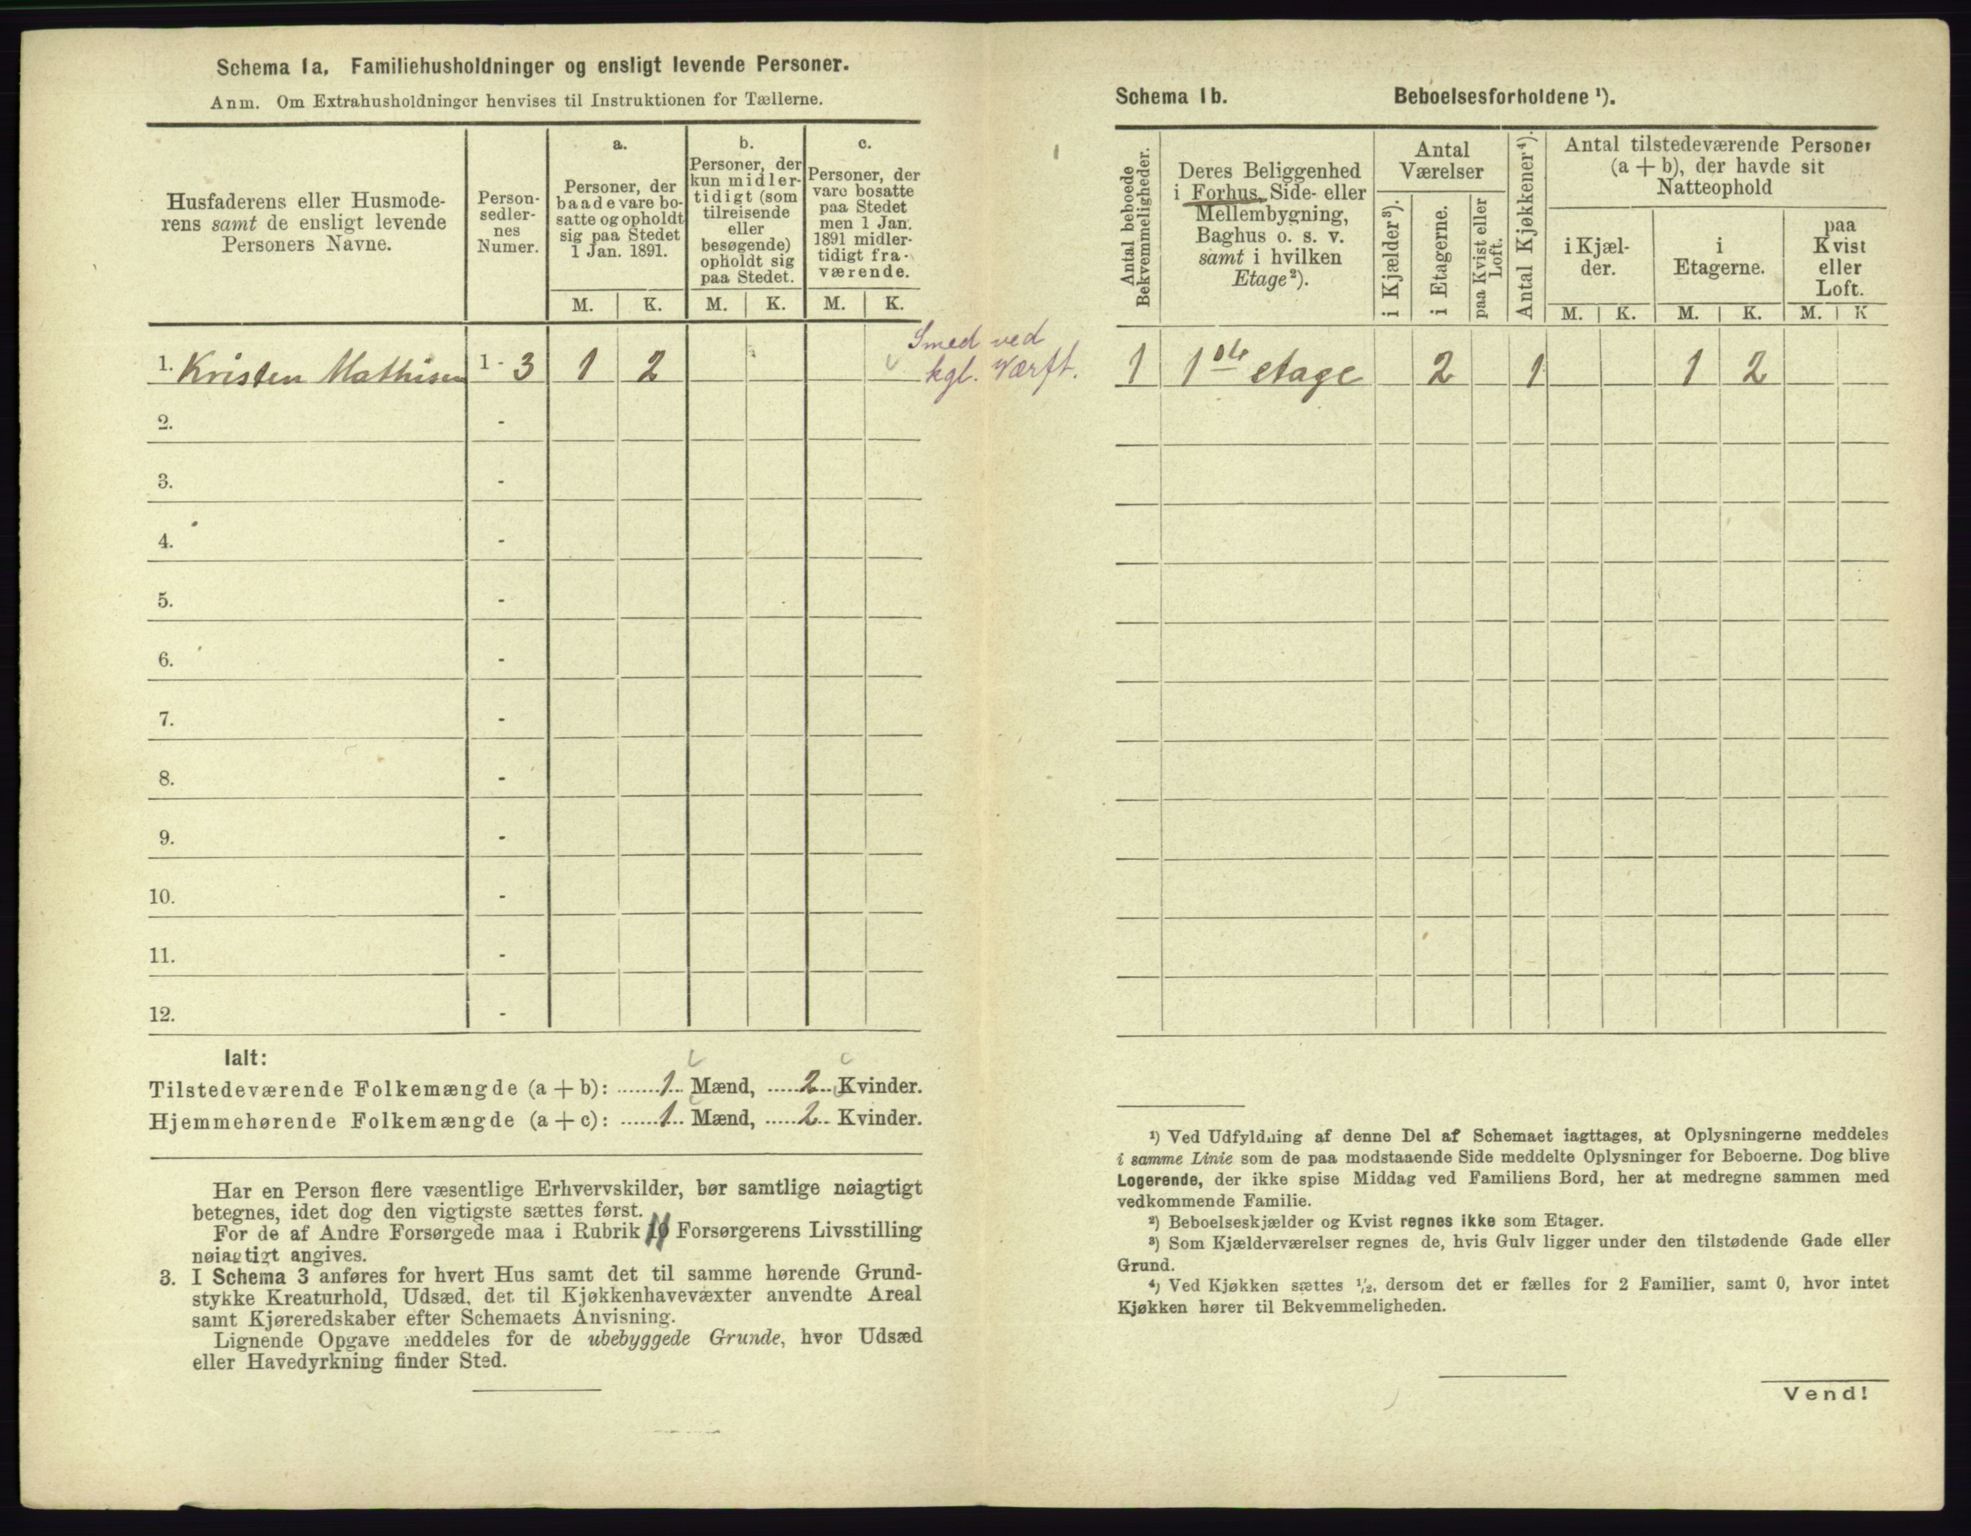 Schema 1a. Familiehusholdninger og ensligt levende Personer.
Anm. Om Extrahusholdninger henvises til Instruktionen for Tællerne.
Husfaderens eller Husmode-
rens samt de ensligt levende
Personers Navne.
Person-
sedler-
nes
Numer.
a.
Personer, der
baade vare bo-
satte og opholdt
sig paa Stedet
1 Jan. 1891.
M. K.
b.
Personer, der
kun midler-
tidigt (som
tilreisende
eller
besøgende)
opholdt sig
paa Stedet.
M. K.
c.
Personer, der
vare bosatte
paa Stedet
men 1 Jan.
1891 midler-
tidigt fra-
værende.
M. K.
1. Kristen Mathisen 1 - 3 1 2
Smed ved
kgl. Værft.
2. -
3. -
4. -
5. -
6. -
7. -
8. -
9. -
10. -
11. -
12. -
Ialt:
Tilstedeværende Folkemængde (a + b): ......1... Mænd, .....2... Kvinder.
Hjemmehørende Folkemængde (a + c): ......1... Mænd, .....2... Kvinder.
Har en Person flere væsentlige Erhvervskilder, bør samtlige nøiagtigt
betegnes, idet dog den vigtigste sættes først.
For de af Andre Forsørgede maa i Rubrik 11 Forsørgerens Livsstilling
nøiagtigt angives.
3. I Schema 3 anføres for hvert Hus samt det til samme hørende Grund-
stykke Kreaturhold, Udsæd, det til Kjøkkenhavevæxter anvendte Areal
samt Kjøreredskaber efter Schemaets Anvisning.
Lignende Opgave meddeles for de ubebyggede Grunde, hvor Udsæd
eller Havedyrkning finder Sted.
Schema 1b. Beboelsesforholdene ¹).
Antal beboede
Bekvemmeligheder.
Deres Beliggenhed
i Forhus, Side- eller
Mellembygning,
Baghus o. s. v.
samt i hvilken
Etage²).
Antal
Værelser
i Kjælder³).
i Etagerne.
paa Kvist eller
Loft.
Antal Kjøkkener⁴).
Antal tilstedeværende Personer
(a + b), der havde sit
Natteophold
i Kjæl-
der.
M. K.
i
Etagerne.
M. K.
paa
Kvist
eller
Loft.
M. K
1 1ste etage 2 1 1 2
¹) Ved Udfyldning af denne Del af Schemaet iagttages, at Oplysningerne meddeles
i samme Linie som de paa modstaaende Side meddelte Oplysninger for Beboerne. Dog blive
Logerende, der ikke spise Middag ved Familiens Bord, her at medregne sammen med
vedkommende Familie.
²) Beboelseskjælder og Kvist regnes ikke som Etager.
³) Som Kjælderværelser regnes de, hvis Gulv ligger under den tilstødende Gade eller
Grund.
⁴) Ved Kjøkken sættes ¹/₂, dersom det er fælles for 2 Familier, samt 0, hvor intet
Kjøkken hører til Bekvemmeligheden.
Vend!